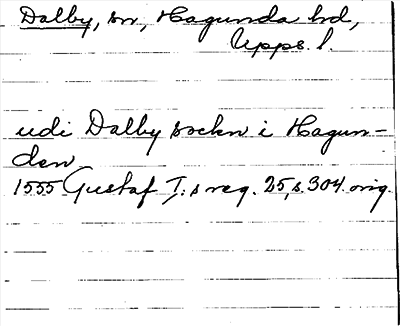 Dalby, sn, Hagunda hd,
Upps. l.
udi Dalby sockn i Hagun-
den
1555 Gustaf I:s reg. 25, s. 304. orig.